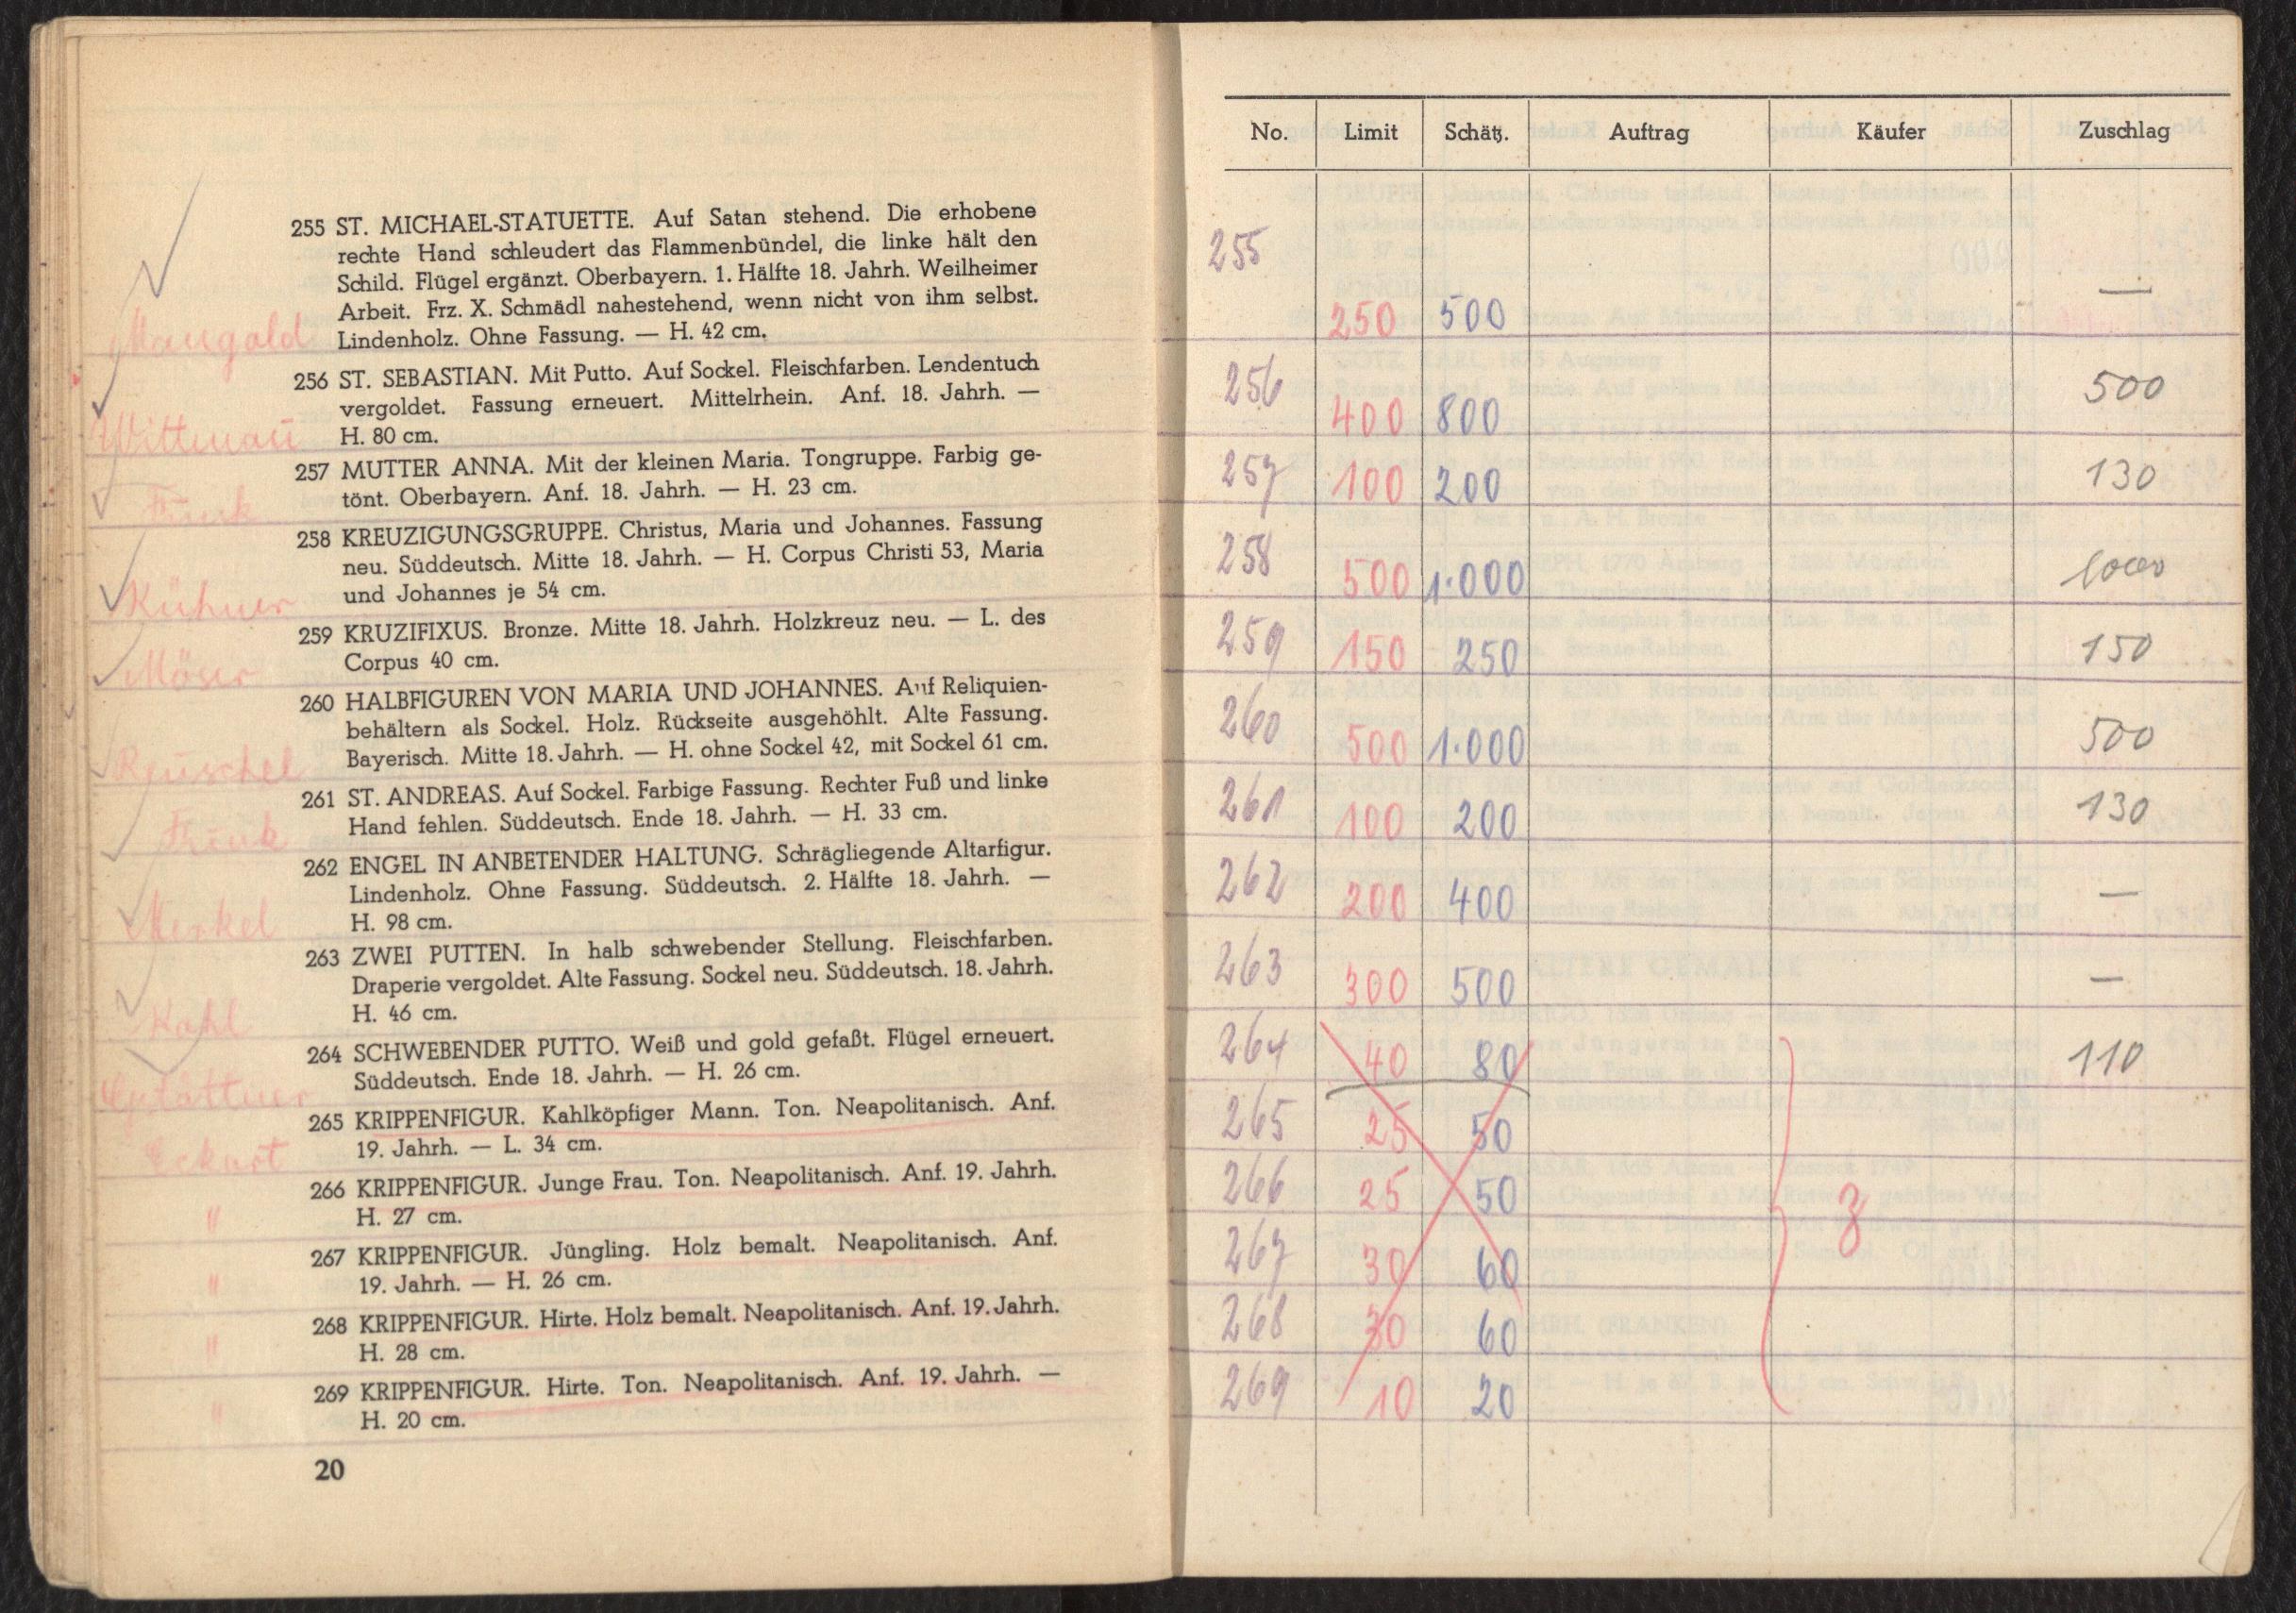 255 ST. MICHAEL-STATUETTE. Auf Satan stehend. Die erhobene
rechte Hand schleudert das Flammenbündel, die linke hält den
Schild. Flügel ergänzt. Oberbayern. 1. Hälfte 18. Jahrh. Weilheimer
Arbeit. Frz. X. Schmädl nahestehend, wenn nicht von ihm selbst.
Mangold Lindenholz. Ohne Fassung. — H. 42 cm.
256 ST. SEBASTIAN. Mit Putto. Auf Sockel. Fleischfarben. Lendentuch
vergoldet. Fassung erneuert. Mittelrhein. Anf. 18. Jahrh. —
H. 80 cm.
257 MUTTER ANNA. Mit der kleinen Maria. Tongruppe. Farbig ge-
Funk tönt. Oberbayern. Anf. 18. Jahrh. — H. 23 cm.
258 KREUZIGUNGSGRUPPE. Christus, Maria und Johannes. Fassung
neu. Süddeutsch. Mitte 18. Jahrh. — H. Corpus Christi 53, Maria
Kühner und Johannes je 54 cm.
259 KRUZIFIXUS. Bronze. Mitte 18. Jahrh. Holzkreuz neu. — L. des
Möser Corpus 40 cm.
260 HALBFIGUREN VON MARIA UND JOHANNES. Auf Reliquien-
behältern als Sockel. Holz. Rückseite ausgehöhlt. Alte Fassung.
Reuschel Bayerisch. Mitte 18. Jahrh. — H. ohne Sockel 42, mit Sockel 61 cm.
261 ST. ANDREAS. Auf Sockel. Farbige Fassung. Rechter Fuß und linke
Funk Hand fehlen. Süddeutsch. Ende 18. Jahrh. — H. 33 cm.
262 ENGEL IN ANBETENDER HALTUNG. Schrägliegende Altarfigur.
Lindenholz. Ohne Fassung. Süddeutsch. 2. Hälfte 18. Jahrh. —
Merkel H. 98 cm.
263 ZWEI PUTTEN. In halb schwebender Stellung. Fleischfarben.
Draperie vergoldet. Alte Fassung. Sockel neu. Süddeutsch. 18. Jahrh.
Kahl H. 46 cm.
264 SCHWEBENDER PUTTO. Weiß und gold gefaßt. Flügel erneuert.
Süddeutsch. Ende 18. Jahrh. — H. 26 cm.
265 KRIPPENFIGUR. Kahlköpfiger Mann. Ton. Neapolitanisch. Anf.
Eckart 19. Jahrh. — L. 34 cm.
266 KRIPPENFIGUR. Junge Frau. Ton. Neapolitanisch. Anf. 19. Jahrh.
" H. 27 cm.
267 KRIPPENFIGUR. Jüngling. Holz bemalt. Neapolitanisch. Anf.
" 19. Jahrh. — H. 26 cm.
268 KRIPPENFIGUR. Hirte. Holz bemalt. Neapolitanisch. Anf. 19. Jahrh.
" H. 28 cm.
269 KRIPPENFIGUR. Hirte. Ton. Neapolitanisch. Anf. 19. Jahrh. —
" H. 20 cm.
20
No. Limit Schätz. Auftrag Käufer Zuschlag
255 250 500 —
256 400 800 500
257 100 200 130
258 500 1.000 1000
259 150 250 150
260 500 1.000 500
261 100 200 130
262 200 400 —
263 300 500 —
264 40 80 110
265 25 50
266 25 50
267 30 60
268 30 60
269 10 20